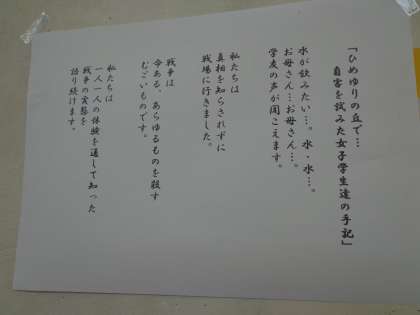 「ひめゆりの丘で…
自害を試みた女子学生達の手記」
水が飲みたい…。水・水…。
お母さん…お母さん…。
学友の声が聞こえます。
私たちは
真相を知らされずに
戦場に行きました。
戦争は
命ある、あらゆるものを殺す
むごいものです。
私たちは
一人一人の体験を通して知った
戦争の実態を
語り続けます。